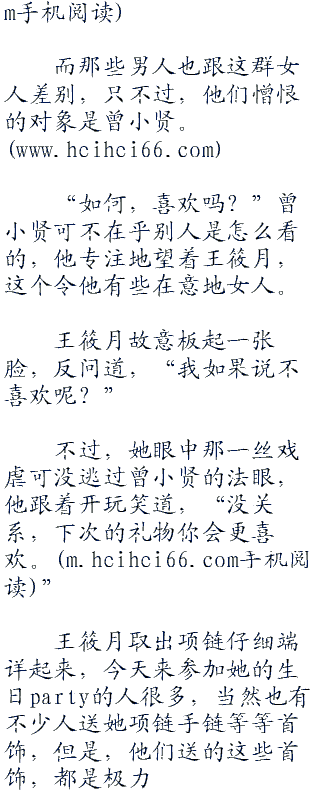 m手机阅读)
而那些男人也跟这群女
人差别，只不过，他们憎恨
的对象是曾小贤。
(www.hcihci66.com)
“如何，喜欢吗？”曾
小贤可不在乎别人是怎么看
的，他专注地望着王筱月，
这个令他有些在意地女人。
王筱月故意板起一张
脸，反问道，“我如果说不
喜欢呢？”
不过，她眼中那一丝戏
虐可没逃过曾小贤的法眼，
他跟着开玩笑道，“没关
系，下次的礼物你会更喜
欢。(m.hcihci66.com手机阅
读)”
王筱月取出项链仔细端
详起来，今天来参加她的生
日party的人很多，当然也有
不少人送她项链手链等等首
饰，但是，他们送的这些首
饰，都是极力